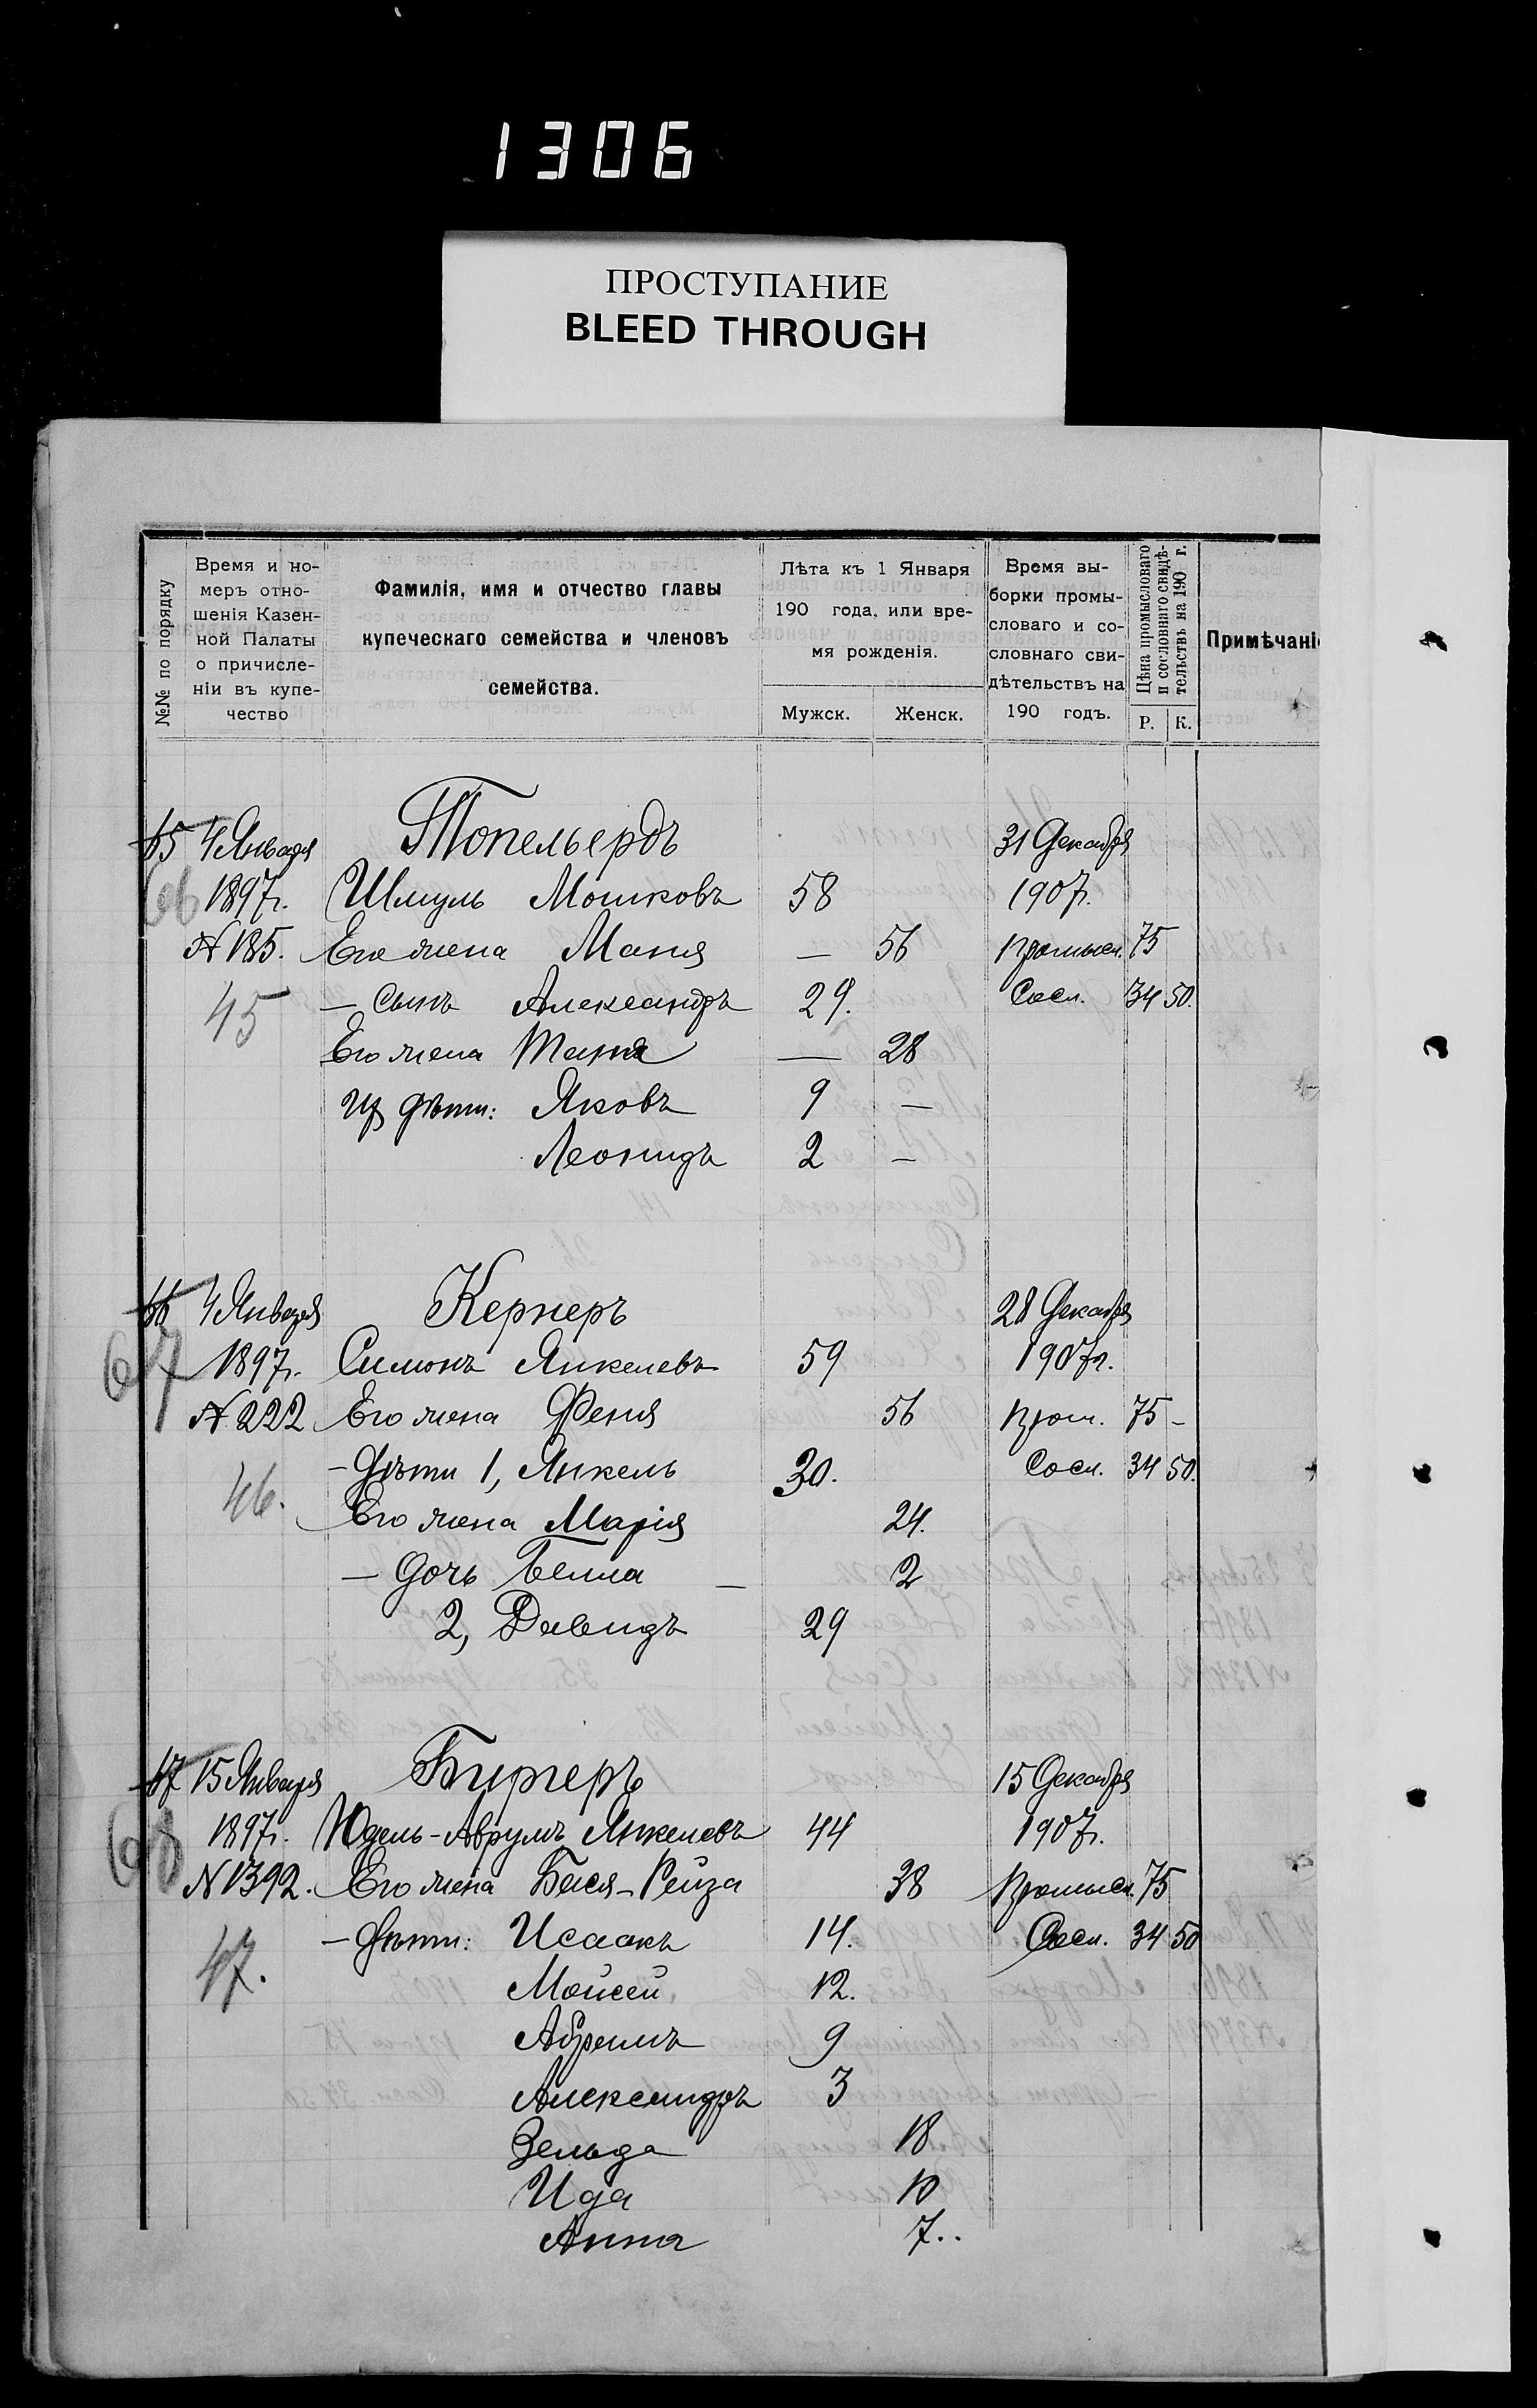 1306
ПРОСТУПАНИЕ
BLEED THROUGH
№№ по порядку
Время и но-
меръ отно-
шенія Казен-
ной Палаты
о причисле-
ніи въ купе-
чество
Фамилія, имя и отчество главы
купеческаго семейства и членовъ
семейства.
Лѣта къ 1 Января
190 года, или вре-
мя рожденія.
Мужск. Женск.
Время вы-
борки промы-
словаго и со-
словнаго сви-
дѣтельствъ на
190 годъ.
Цѣна промысловаго
и сословнаго свидѣ-
тельствъ на 190 г.
Р. К.
Примѣчані
65 4 Января Топельбердъ 31 Декабря
66 1897г. Шмуль Мошковъ 58 1907г.
№ 185. Его жена Маня — 56 Промысл. 75
45 — Сынъ Александръ 29. Сосл. 34 50.
Его жена Таня — 28
Ихъ дѣти: Яковъ 9 —
Леонидъ 2 —
66 4 Января Кернеръ 28 Декабря
67 1897г. Симонъ Янкелевъ 59 1907г.
№ 222 Его жена Феня 56 Пром. 75 —
— Дѣти 1, Янкель 30. Сосл. 34 50.
46. Его жена Марія 24.
— Дочь Белла — 2
2, Давидъ 29
67 15 Января Биргеръ 15 Декабря
68 1897г. Юдель-Аврумъ Янкелевъ 44 1907г.
№ 1392. Его жена Бася-Рейза 38 Промысл. 75
— Дѣти: Исаакъ 14. Сосл. 34 50
47. Мойсей 12.
Абрамъ 9
Александръ 3
Зельда 18
Ида 10
Анна 7..